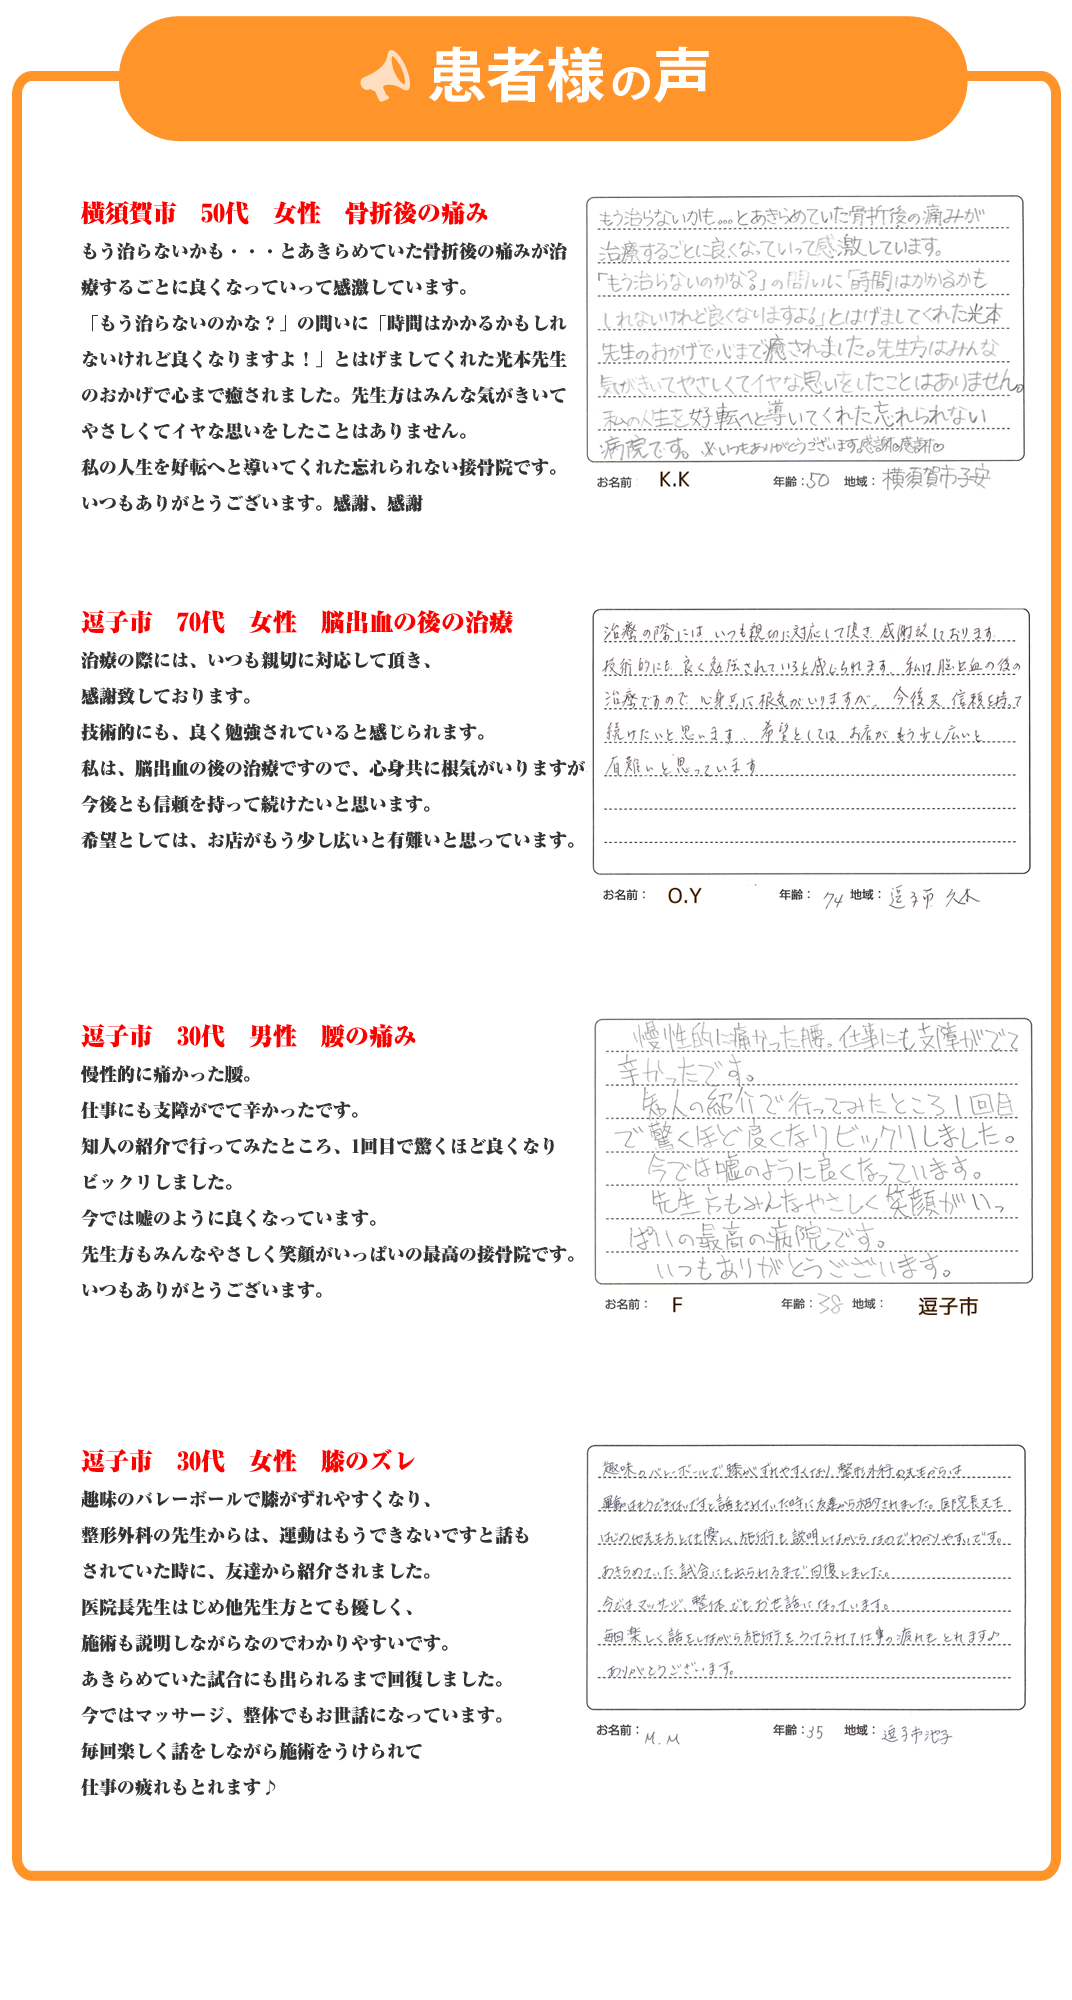 患者様の声
横須賀市　50代　女性　骨折後の痛み
もう治らないかも・・・とあきらめていた骨折後の痛みが治
療するごとに良くなっていって感激しています。
「もう治らないのかな？」の問いに「時間はかかるかもしれ
ないけれど良くなりますよ！」とはげましてくれた光本先生
のおかげで心まで癒されました。先生方はみんな気がきいて
やさしくてイヤな思いをしたことはありません。
私の人生を好転へと導いてくれた忘れられない接骨院です。
いつもありがとうございます。感謝、感謝
もう治らないかも。。。とあきらめていた骨折後の痛みが
治療するごとに良くなっていって感激しています。
「もう治らないのかな？」の問いに「時間はかかるかも
しれないけれど良くなりますよ！」とはげましてくれた光本
先生のおかげで心まで癒されました。先生方はみんな
気がきいてやさしくてイヤな思いをしたことはありません。
私の人生を好転へと導いてくれた忘れられない
病院です。※いつもありがとうございます感謝♡感謝♡
お名前　K.K　年齢：50　地域：横須賀市子安
逗子市　70代　女性　脳出血の後の治療
治療の際には、いつも親切に対応して頂き、
感謝致しております。
技術的にも、良く勉強されていると感じられます。
私は、脳出血の後の治療ですので、心身共に根気がいりますが
今後とも信頼を持って続けたいと思います。
希望としては、お店がもう少し広いと有難いと思っています。
治療の際には いつも親切に対応して頂き 感謝致しております
技術的にも 良く勉強されていると感じられます。私は 脳出血の後の
治療ですので 心身共に根気がいりますが、今後又 信頼を持って
続けたいと思います。希望としては お店が もう少し広いと
有難いと思っています
お名前：　O.Y　年齢：74　地域：逗子市 久木
逗子市　30代　男性　腰の痛み
慢性的に痛かった腰。
仕事にも支障がでて辛かったです。
知人の紹介で行ってみたところ、1回目で驚くほど良くなり
ビックリしました。
今では嘘のように良くなっています。
先生方もみんなやさしく笑顔がいっぱいの最高の接骨院です。
いつもありがとうございます。
慢性的に痛かった腰。仕事にも支障がでて
辛かったです。
知人の紹介で行ってみたところ1回目
で驚くほど良くなりビックリしました。
今では嘘のように良くなっています。
先生方もみんなやさしく笑顔がいっ
ぱいの最高の病院です。
いつもありがとうございます。
お名前：　F　年齢：38　地域：　逗子市
逗子市　30代　女性　膝のズレ
趣味のバレーボールで膝がずれやすくなり、
整形外科の先生からは、運動はもうできないですと話も
されていた時に、友達から紹介されました。
医院長先生はじめ他先生方とても優しく、
施術も説明しながらなのでわかりやすいです。
あきらめていた試合にも出られるまで回復しました。
今ではマッサージ、整体でもお世話になっています。
毎回楽しく話をしながら施術をうけられて
仕事の疲れもとれます♪
趣味のバレーボールで膝がずれやすくなり、整形外科の先生からは
運動はもうできないですと話もされていた時に友達から紹介されました。医院長先生
はじめ他先生方とても優しく、施術も説明しながらなのでわかりやすいです。
あきらめていた試合にも出られるまで回復しました。
今ではマッサージ、整体でもお世話になっています。
毎回楽しく話をしながら施術をうけられて仕事の疲れもとれます♪
ありがとうございます。
お名前：M.M　年齢：35　地域：逗子市池子